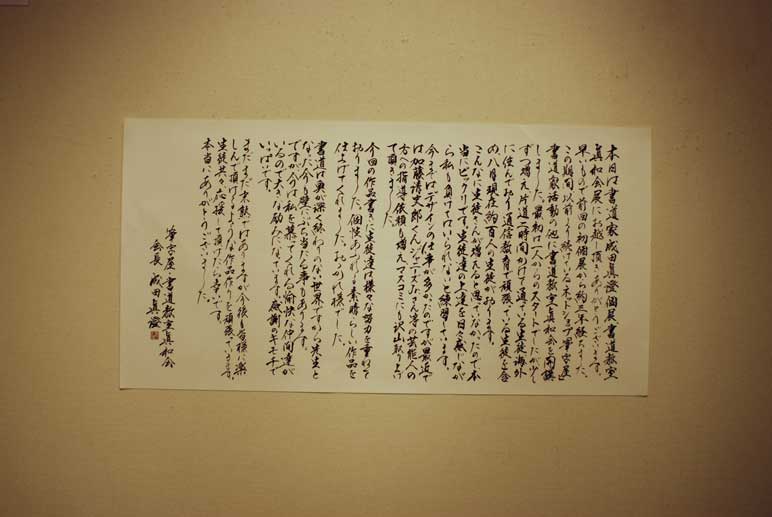 本日は書道家成田眞澄個展、書道教室
眞和会展にお越し頂きありがとうございます。
早いもので前回の初個展から約三年経ちました。
この期間以前より続けているネットショップ「筆字屋」
書道家活動の他に書道教室眞和会を開講
しました。最初は一人からのスタートでしたが少し
ずつ増え片道二時間かけて通っている生徒、海外
に住んでおり通信教育で頑張っている生徒を含
め、八月現在約百人の生徒がおります。
こんなに生徒さんが増えると思っていなかったので本
当にビックリです。生徒達の上達を日々感じなが
ら私も負けてはいられないなと練習しています。
今まではデザインの仕事が多かったのですが最近で
は加藤清史郎くん、ベニーズさん等の芸能人の
方への指導依頼も増えマスコミにも沢山取り上げ
て頂きました。
今回の作品書きに生徒達は様々な努力を重ねて
おりました。個性あふれる素晴らしい作品を
仕上げてくれました。おつかれ様でした。
書道は奥が深く終わりのない世界ですから先生と
なった今も壁にぶち当たる事もあります。
ですが今は私を慕ってくれる愉快な仲間達が
いるので大きな励みになっています。感謝のキモチで
いっぱいです。
まだまだ未熟ではありますが今後も皆様に楽
しんで頂けるような作品作りを頑張っていきます。
生徒共々応援して頂けたら幸いです。
本当にありがとうございました。
筆字屋 書道教室眞和会
会長 成田眞澄